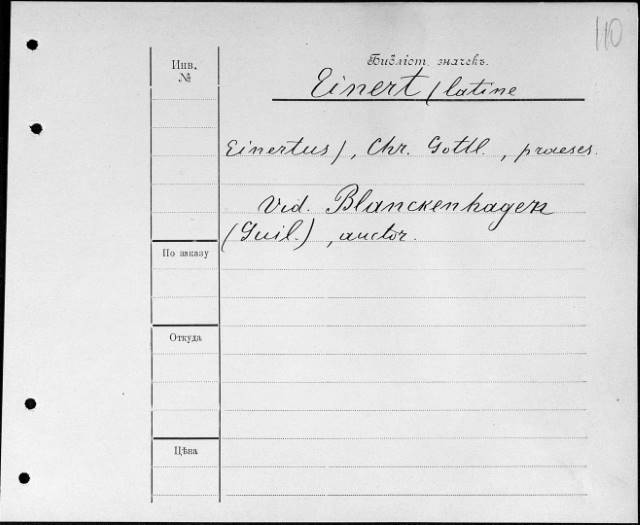 110
Инв.
№
Библіот. значекъ.
Einert (latine
Einertus), Chr. Gottl., praeses.
Vid. Blanckenhagen
(Guil.), auctor.
По заказу
Откуда
Цѣна